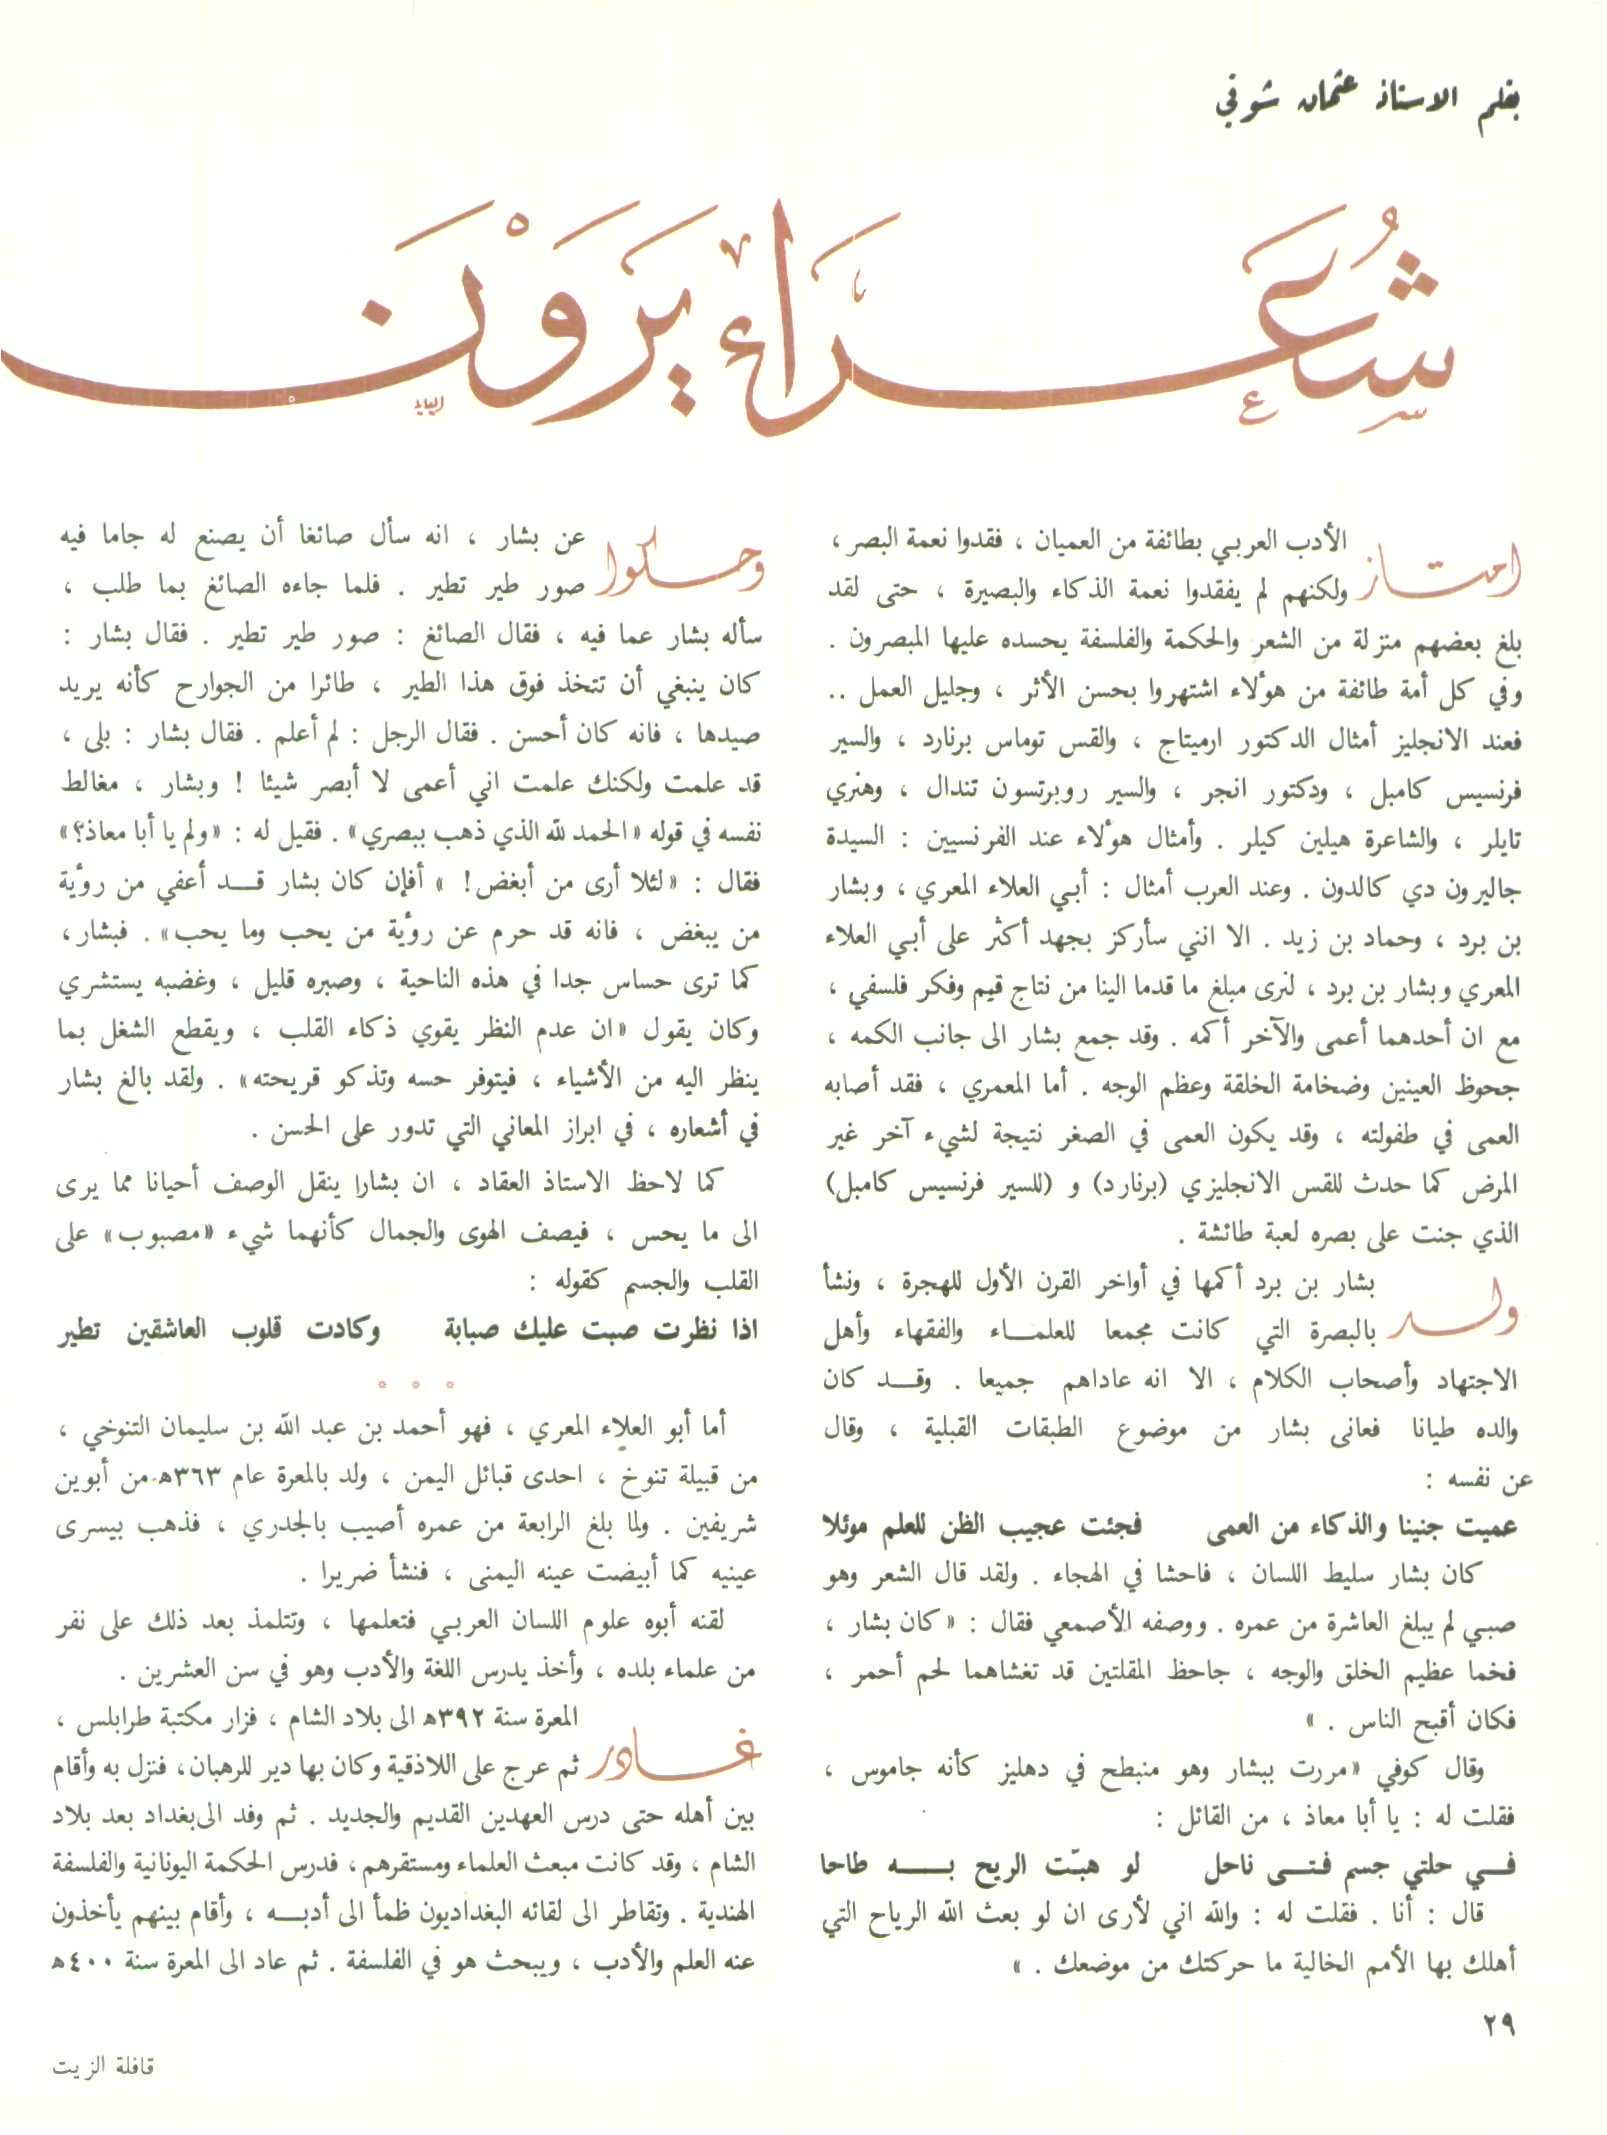 بقلم الاستاذ عثمان شوقي
شُعَرَاء يَرَوْنَ
امتاز الأدب العربي بطائفة من العميان ، فقدوا نعمة البصر ،
ولكنهم لم يفقدوا نعمة الذكاء والبصيرة ، حتى لقد
بلغ بعضهم منزلة من الشعر والحكمة والفلسفة يحسده عليها المبصرون .
وفي كل أمة طائفة من هؤلاء اشتهروا بحسن الأثر ، وجليل العمل ..
فعند الانجليز أمثال الدكتور ارميتاج ، والقس توماس برنارد ، والسير
فرنسيس كامبل ، ودكتور انجر ، والسير روبرتسون تندال ، وهنري
تايلر ، والشاعرة هيلين كيلر . وأمثال هؤلاء عند الفرنسيين : السيدة
جاليرون دي كالدون . وعند العرب أمثال : أبي العلاء المعري ، وبشار
بن برد ، وحماد بن زيد . الا انني سأركز بجهد أكثر على أبي العلاء
المعري وبشار بن برد ، لنرى مبلغ ما قدما الينا من نتاج قيم وفكر فلسفي ،
مع ان أحدهما أعمى والآخر أكمه . وقد جمع بشار الى جانب الكمه ،
جحوظ العينين وضخامة الخلقة وعظم الوجه . أما المعمري ، فقد أصابه
العمى في طفولته ، وقد يكون العمى في الصغر نتيجة لشيء آخر غير
المرض كما حدث للقس الانجليزي (برنارد) و (للسير فرنسيس كامبل)
الذي جنت على بصره لعبة طائشة .
ولد بشار بن برد أكمها في أواخر القرن الأول للهجرة ، ونشأ
بالبصرة التي كانت مجمعا للعلمـاء والفقهاء وأهل
الاجتهاد وأصحاب الكلام ، الا انه عاداهم جميعا . وقـد كان
والده طيانا فعانى بشار من موضوع الطبقات القبلية ، وقال
عن نفسه :
عميت جنينا والذكاء من العمى فجئت عجيب الظن للعلم موئلا
كان بشار سليط اللسان ، فاحشا في الهجاء . ولقد قال الشعر وهو
صبي لم يبلغ العاشرة من عمره . ووصفه الأصمعي فقال : « كان بشار ،
فخما عظيم الخلق والوجه ، جاحظ المقلتين قد تغشاهما لحم أحمر ،
فكان أقبح الناس . »
وقال كوفي « مررت ببشار وهو منبطح في دهليز كأنه جاموس ،
فقلت له : يا أبا معاذ ، من القائل :
فـي حلتي جسم فـتـى ناحل لو هبّت الريح بـه طاحا
قال : أنا . فقلت له : والله اني لأرى ان لو بعث الله الرياح التي
أهلك بها الأمم الخالية ما حركتك من موضعك . »
وحكوا عن بشار ، انه سأل صائغا أن يصنع له جاما فيه
صور طير تطير . فلما جاءه الصائغ بما طلب ،
سأله بشار عما فيه ، فقال الصائغ : صور طير تطير . فقال بشار :
كان ينبغي أن تتخذ فوق هذا الطير ، طائرا من الجوارح كأنه يريد
صيدها ، فانه كان أحسن . فقال الرجل : لم أعلم . فقال بشار : بلى ،
قد علمت ولكنك علمت اني أعمى لا أبصر شيئا ! وبشار ، مغالط
نفسه في قوله « الحمد لله الذي ذهب ببصري» . فقيل له : «ولم يا أبا معاذ؟»
فقال : « لئلا أرى من أبغض! » أفإن كان بشار قـد أعفي من رؤية
من يبغض ، فانه قد حرم عن رؤية من يحب وما يحب» . فبشار،
كما ترى حساس جدا في هذه الناحية ، وصبره قليل ، وغضبه يستشري
وكان يقول « ان عدم النظر يقوي ذكاء القلب ، ويقطع الشغل بما
ينظر اليه من الأشياء ، فيتوفر حسه وتذكو قريحته» . ولقد بالغ بشار
في أشعاره ، في ابراز المعاني التي تدور على الحسن .
كما لاحظ الاستاذ العقاد ، ان بشارا ينقل الوصف أحيانا مما يرى
الى ما يحس ، فيصف الهوى والجمال كأنهما شيء «مصبوب» على
القلب والجسم كقوله :
اذا نظرت صبت عليك صبابة وكادت قلوب العاشقين تطير
أما أبو العلاء المعري ، فهو أحمد بن عبد الله بن سليمان التنوخي ،
من قبيلة تنوخ ، احدى قبائل اليمن ، ولد بالمعرة عام ٣٦٣هـ من أبوين
شريفين . ولما بلغ الرابعة من عمره أصيب بالجدري ، فذهب بيسرى
عينيه كما أبيضت عينه اليمنى ، فنشأ ضريرا .
لقنه أبوه علوم اللسان العربي فتعلمها ، وتتلمذ بعد ذلك على نفر
من علماء بلده ، وأخذ يدرس اللغة والأدب وهو في سن العشرين .
غادر المعرة سنة ٣٩٢هـ الى بلاد الشام ، فزار مكتبة طرابلس ،
ثم عرج على اللاذقية وكان بها دير للرهبان، فنزل به وأقام
بين أهله حتى درس العهدين القديم والجديد . ثم وفد الى بغداد بعد بلاد
الشام ، وقد كانت مبعث العلماء ومستقرهم، فدرس الحكمة اليونانية والفلسفة
الهندية . وتقاطر الى لقائه البغداديون ظمأ الى أدبـه ، وأقام بينهم يأخذون
عنه العلم والأدب ، ويبحث هو في الفلسفة . ثم عاد الى المعرة سنة ٤٠٠هـ
٢٩
قافلة الزيت